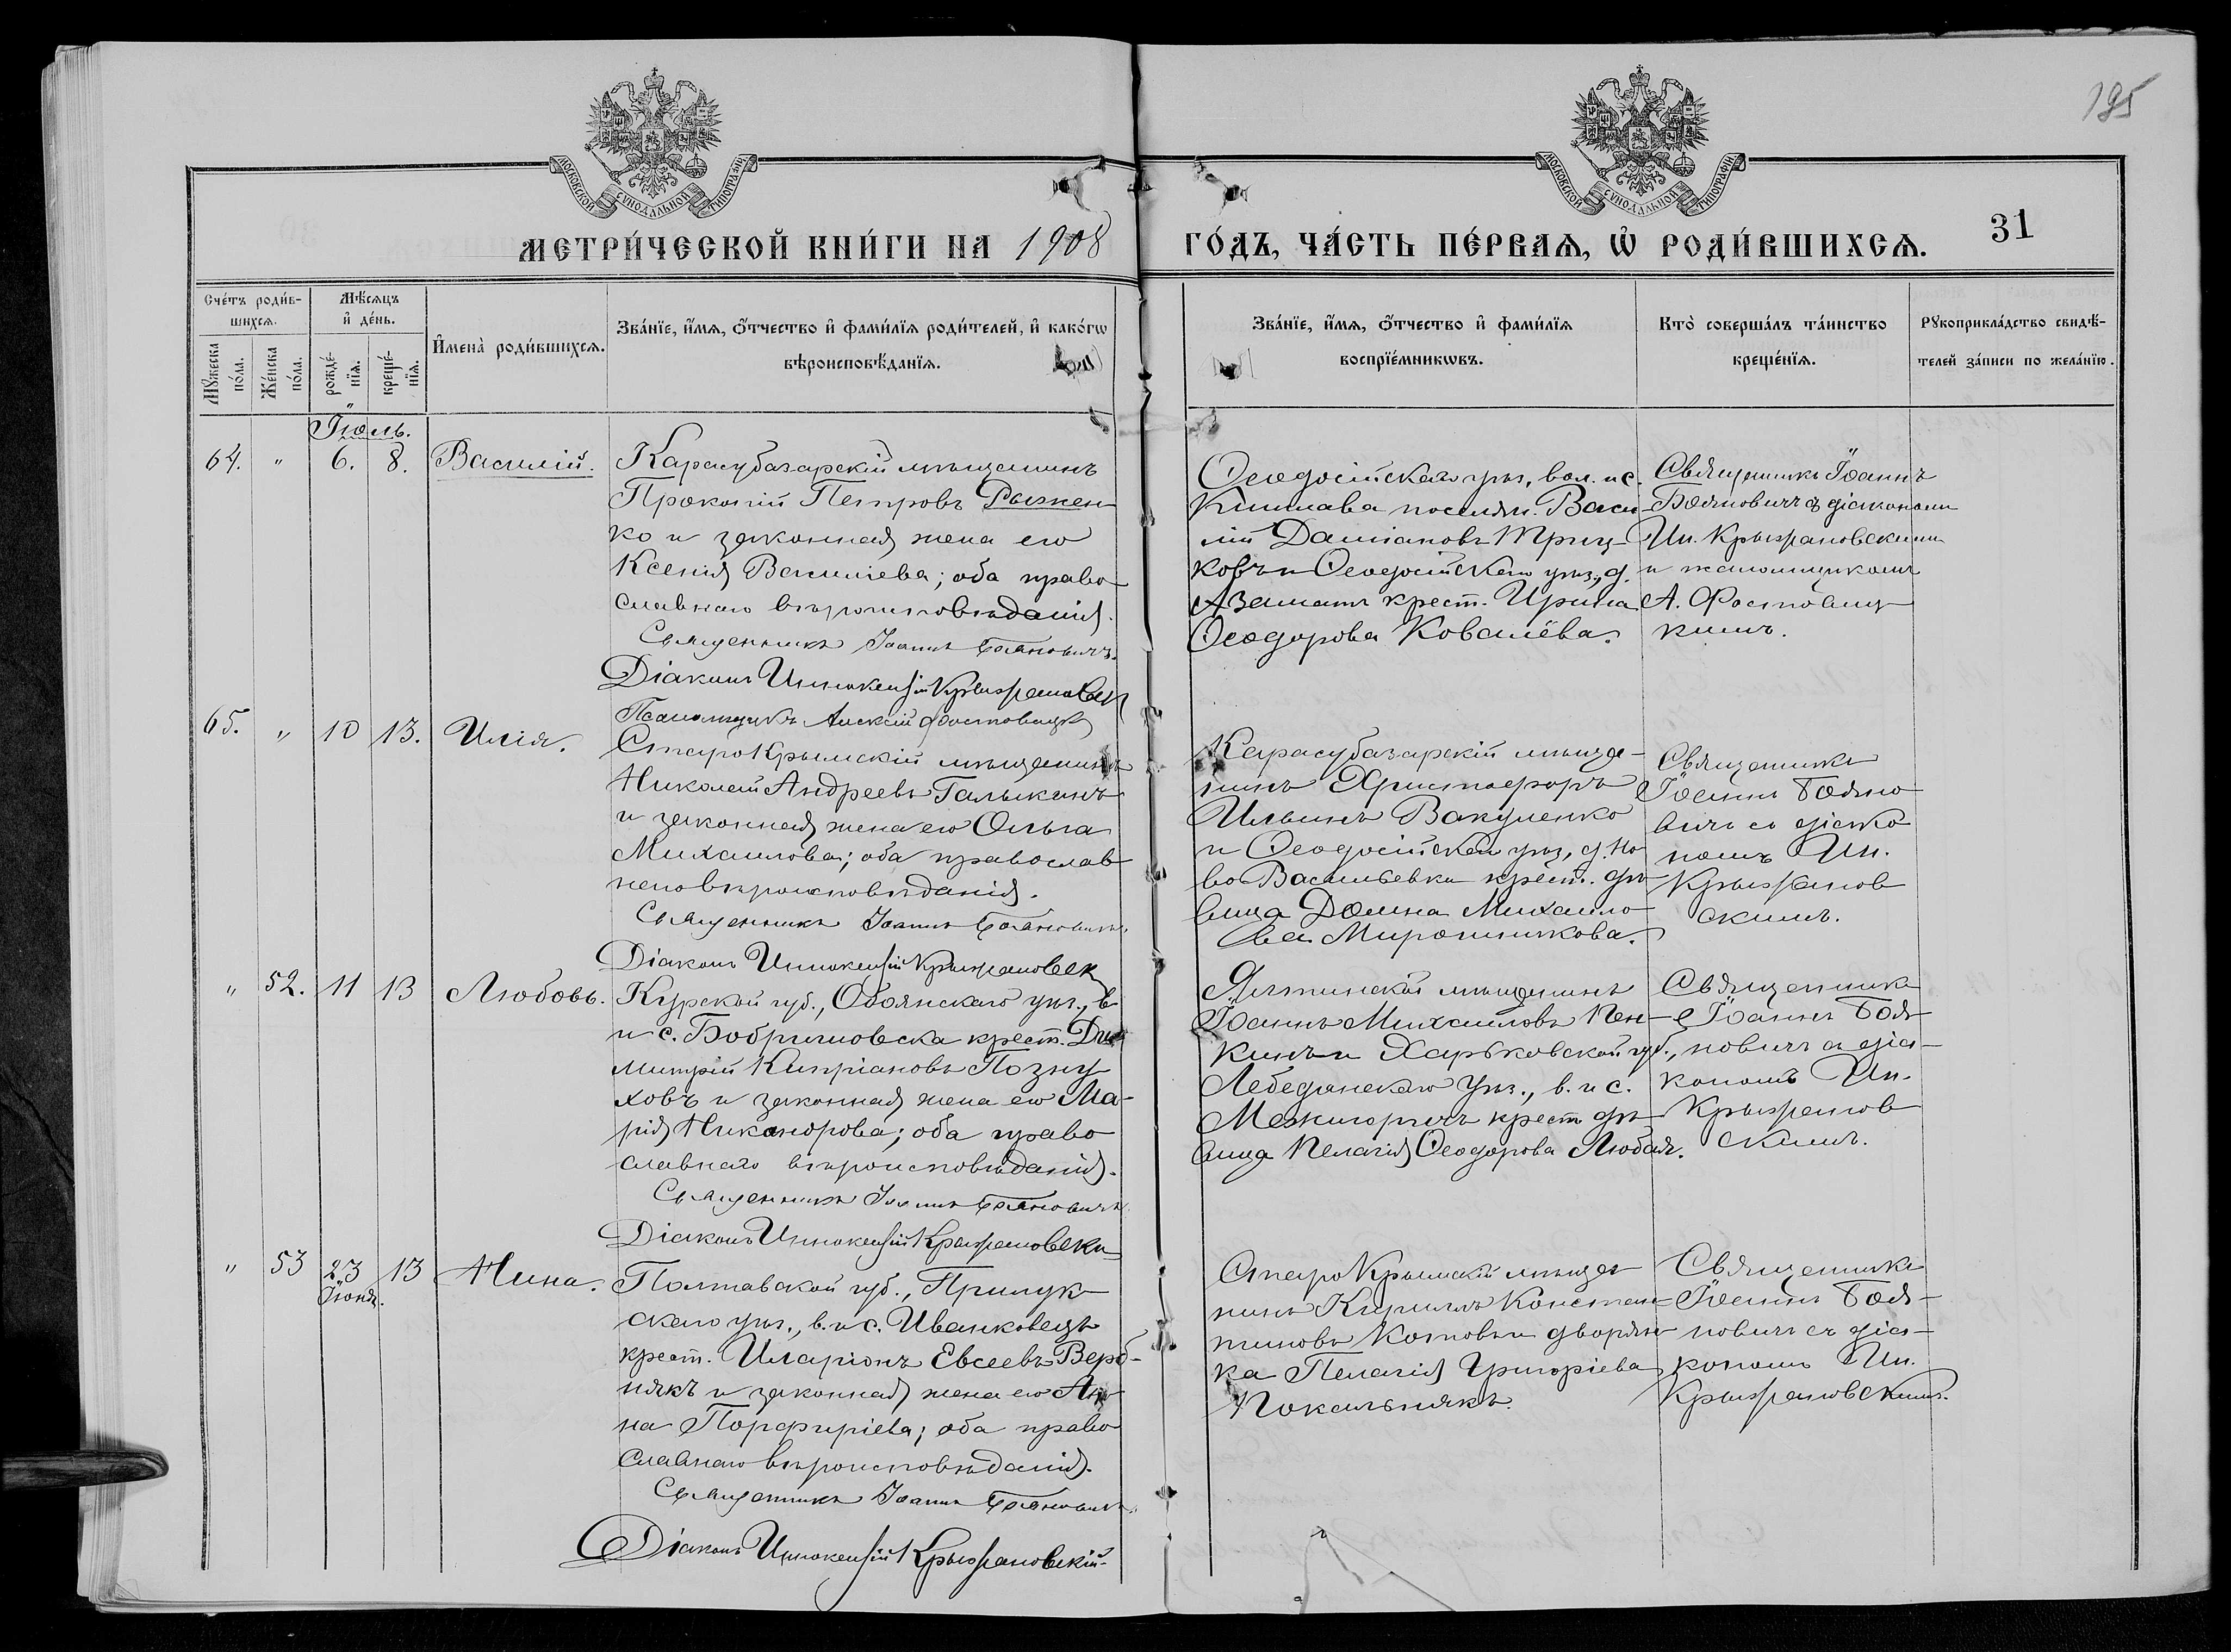 195
МОСКОВСКОЙ СѴНОДАЛЬНОЙ ТИПОГРАФІИ
МОСКОВСКОЙ СѴНОДАЛЬНОЙ ТИПОГРАФІИ
МЕТРИ́ЧЕСКОЙ КНИ́ГИ НА 1908
ГО́ДЪ, ЧА́СТЬ ПЕ́РВАѦ, Ѡ РОДИ́ВШИХСѦ.
31
Сче́тъ роди́в-
шихсѧ.
Мꙋ́жеска по́ла.
Же́нска по́ла.
Мѣ́сѧцъ
и҆ де́нь.
рожде́-
нїѧ.
креще́-
нїѧ.
И҆мена̀ роди́вшихсѧ.
Зва́нїе, и҆́мѧ, ѻ҆́тчество и҆ фами́лїѧ роди́телей, и҆ како́гѡ
вѣроисповѣ́данїѧ.
Зва́нїе, и҆́мѧ, ѻ҆́тчество и҆ фами́лїѧ
воспрїе́мникѡвъ.
Кто̀ соверша́лъ та́инство
креще́нїѧ.
Рꙋкоприкла́дство свидѣ́-
телей за́писи по жела́нїю.
Іюль.
64. " 6. 8. Василій.
Карасубазарскій мѣщанинъ
Прокопій Петровъ Рыжен
ко и законная жена его
Ксенія Василіева; оба право
славнаго вѣроисповѣданія.
Священникъ Іоаннъ Бояновичъ.
Діаконъ Иннокентій Крыжановск
Псаломщикъ Алексій Фостовицк
Ѳеодосійскаго уѣз., вол. и с.
Кишлава поселян. Васи
лій Даміановъ Триц-
ковъ и Ѳеодосійскаго уѣз., д.
Азаматъ крест. Ирина
Ѳеодорова Ковалёва.
Священникъ Іоаннъ
Бояновичъ съ діакономъ
Ин. Крыжановскимъ
и псаломщикомъ
А. Фостовиц
кимъ.
65. " 10 13. Илія.
СтароКрымскій мѣщанинъ
Николай Андреевъ Галыкинъ
и законная жена его Ольга
Михаилова; оба православ
наго вѣроисповѣданія.
Священникъ Іоаннъ Бояновичъ.
Діаконъ Иннокентій Крыжановск
Карасубазарскій мѣща-
нинъ Христофоръ
Ильинъ Вакуленко
и Ѳеодосійскаго уѣз., д. Но
во Васильевки крест. дѣ
вица Домна Михаило
ва Мирошникова.
Священникъ
Іоаннъ Бояно
вичъ съ діако
номъ Ин.
Крыжанов
скимъ.
" 52. 11 13 Любовь.
Курской губ., Обоянскаго уѣз., в
и с. крест. Ди
митрій Кипріановъ Позну
ховъ и законная жена его Ма-
рія Никанорова; оба право
славнаго вѣроисповѣданія.
Священникъ Іоаннъ Бояновичъ
Діаконъ Иннокентій Крыжановски
Ялтинскій мѣщанинъ
Іоаннъ Михайловъ Пен-
кинъ и Харьковской губ.,
Лебедянскаго уѣз., в. и с.
Межиричъ крест дѣ
вица Пелагія Ѳеодорова Любая.
Священникъ
Іоаннъ Боя
новичъ съ діа-
кономъ Ин.
Крыжанов
скимъ.
" 53 23 13 Нина.
Іюня.
Полтавской губ., Прилук
скаго уѣз., в. и с. Иванковецъ
крест. Иларіонъ Евсеевъ Верб-
някъ и законная жена его Ан
на Порфиріева; оба право
славнаго вѣроисповѣданія.
Священникъ Іоаннъ Бояновичъ.
Діаконъ Иннокентій Крыжановскій
СтароКрымскій мѣща
нинъ Кириллъ Констан
тиновъ Котовъ и дворян
ка Пелагія Григоріева
Покальнякъ.
Священникъ
Іоаннъ Боя-
новичъ съ діа-
кономъ Ин.
Крыжановскимъ.